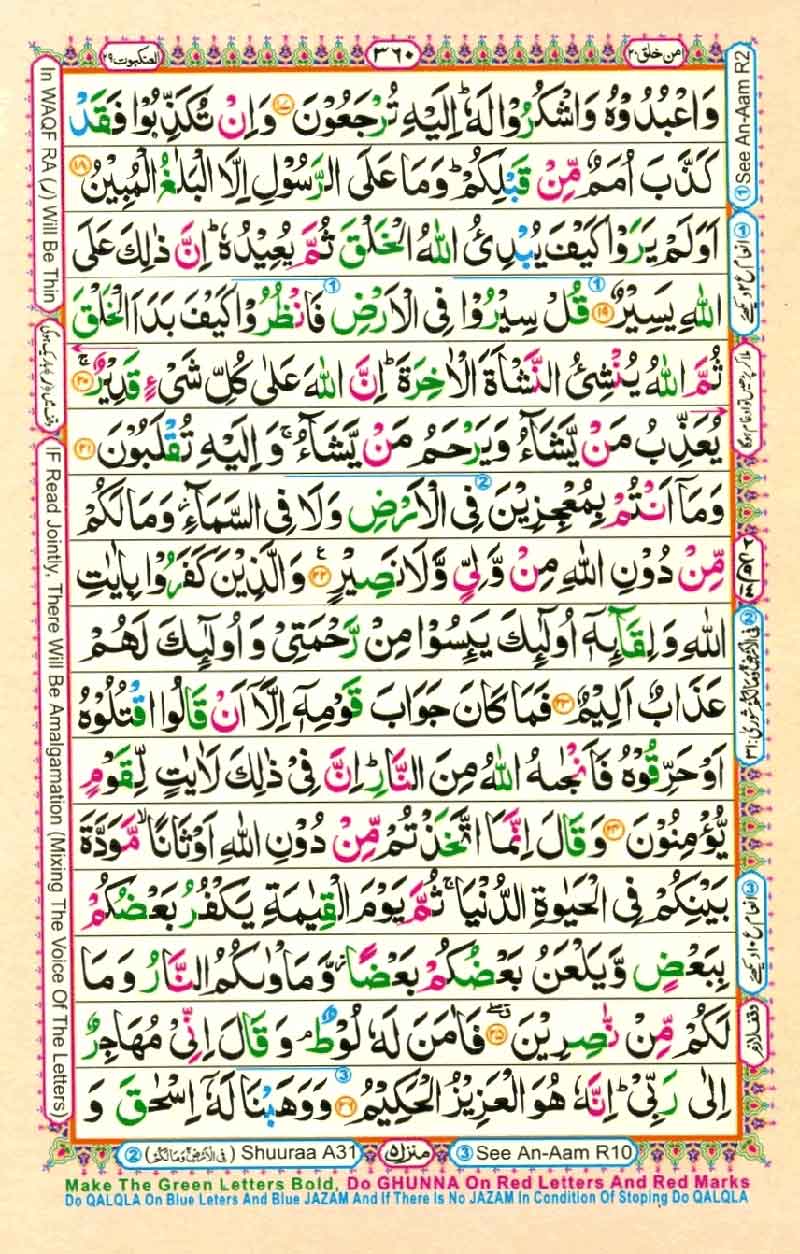 امن خلق ۲۰
۳۶۰
العنکبوت ۲۹
وَاعْبُدُوْهُ وَاشْكُرُوْا لَهٗ ؕ اِلَيْهِ تُرْجَعُوْنَ ﴿۱۷﴾ وَاِنْ تُكَذِّبُوْا فَقَدْ
كَذَّبَ اُمَمٌ مِّنْ قَبْلِكُمْ ؕ وَمَا عَلَى الرَّسُوْلِ اِلَّا الْبَلٰغُ الْمُبِيْنُ ﴿۱۸﴾
اَوَلَمْ يَرَوْا كَيْفَ يُبْدِئُ اللّٰهُ الْخَلْقَ ثُمَّ يُعِيْدُهٗ ؕ اِنَّ ذٰلِكَ عَلَى
اللّٰهِ يَسِيْرٌ ﴿۱۹﴾ قُلْ سِيْرُوْا فِى الْاَرْضِ فَانْظُرُوْا كَيْفَ بَدَاَ الْخَلْقَ
ثُمَّ اللّٰهُ يُنْشِئُ النَّشْاَةَ الْاٰخِرَةَ ؕ اِنَّ اللّٰهَ عَلٰى كُلِّ شَىْءٍ قَدِيْرٌ ۚ ﴿۲۰﴾
يُعَذِّبُ مَنْ يَّشَآءُ وَيَرْحَمُ مَنْ يَّشَآءُ ۚ وَاِلَيْهِ تُقْلَبُوْنَ ﴿۲۱﴾
وَمَاۤ اَنْتُمْ بِمُعْجِزِيْنَ فِى الْاَرْضِ وَلَا فِى السَّمَآءِ ؗ وَمَا لَكُمْ
مِّنْ دُوْنِ اللّٰهِ مِنْ وَّلِىٍّ وَّلَا نَصِيْرٍ ﴿۲۲﴾ وَالَّذِيْنَ كَفَرُوْا بِاٰيٰتِ
اللّٰهِ وَلِقَآئِهٖۤ اُولٰٓئِكَ يَئِسُوْا مِنْ رَّحْمَتِىْ وَاُولٰٓئِكَ لَهُمْ
عَذَابٌ اَلِيْمٌ ﴿۲۳﴾ فَمَا كَانَ جَوَابَ قَوْمِهٖۤ اِلَّاۤ اَنْ قَالُوا اقْتُلُوْهُ
اَوْ حَرِّقُوْهُ فَاَنْجٰىهُ اللّٰهُ مِنَ النَّارِ ؕ اِنَّ فِىْ ذٰلِكَ لَاٰيٰتٍ لِّقَوْمٍ
يُّؤْمِنُوْنَ ﴿۲۴﴾ وَقَالَ اِنَّمَا اتَّخَذْتُمْ مِّنْ دُوْنِ اللّٰهِ اَوْثَانًا ۙ مَّوَدَّةَ
بَيْنِكُمْ فِى الْحَيٰوةِ الدُّنْيَا ۚ ثُمَّ يَوْمَ الْقِيٰمَةِ يَكْفُرُ بَعْضُكُمْ
بِبَعْضٍ وَّيَلْعَنُ بَعْضُكُمْ بَعْضًا ؗ وَّمَاْوٰىكُمُ النَّارُ وَمَا
لَكُمْ مِّنْ نّٰصِرِيْنَ ﴿۲۵﴾ فَاٰمَنَ لَهٗ لُوْطٌ ۘ وَقَالَ اِنِّىْ مُهَاجِرٌ
اِلٰى رَبِّىْ ؕ اِنَّهٗ هُوَ الْعَزِيْزُ الْحَكِيْمُ ﴿۲۶﴾ وَوَهَبْنَا لَهٗۤ اِسْحٰقَ وَ
① See An-Aam R2
وقف لازم
In WAQF RA (ر) Will Be Thin
IF Read Jointly, There Will Be Amalgamation (Mixing The Voice Of The Letters)
② (فی الارض ومالکم) Shuuraa A31
منزل ۵
③ See An-Aam R10
Make The Green Letters Bold, Do GHUNNA On Red Letters And Red Marks
Do QALQLA On Blue Leters And Blue JAZAM And If There Is No JAZAM In Condition Of Stoping Do QALQLA